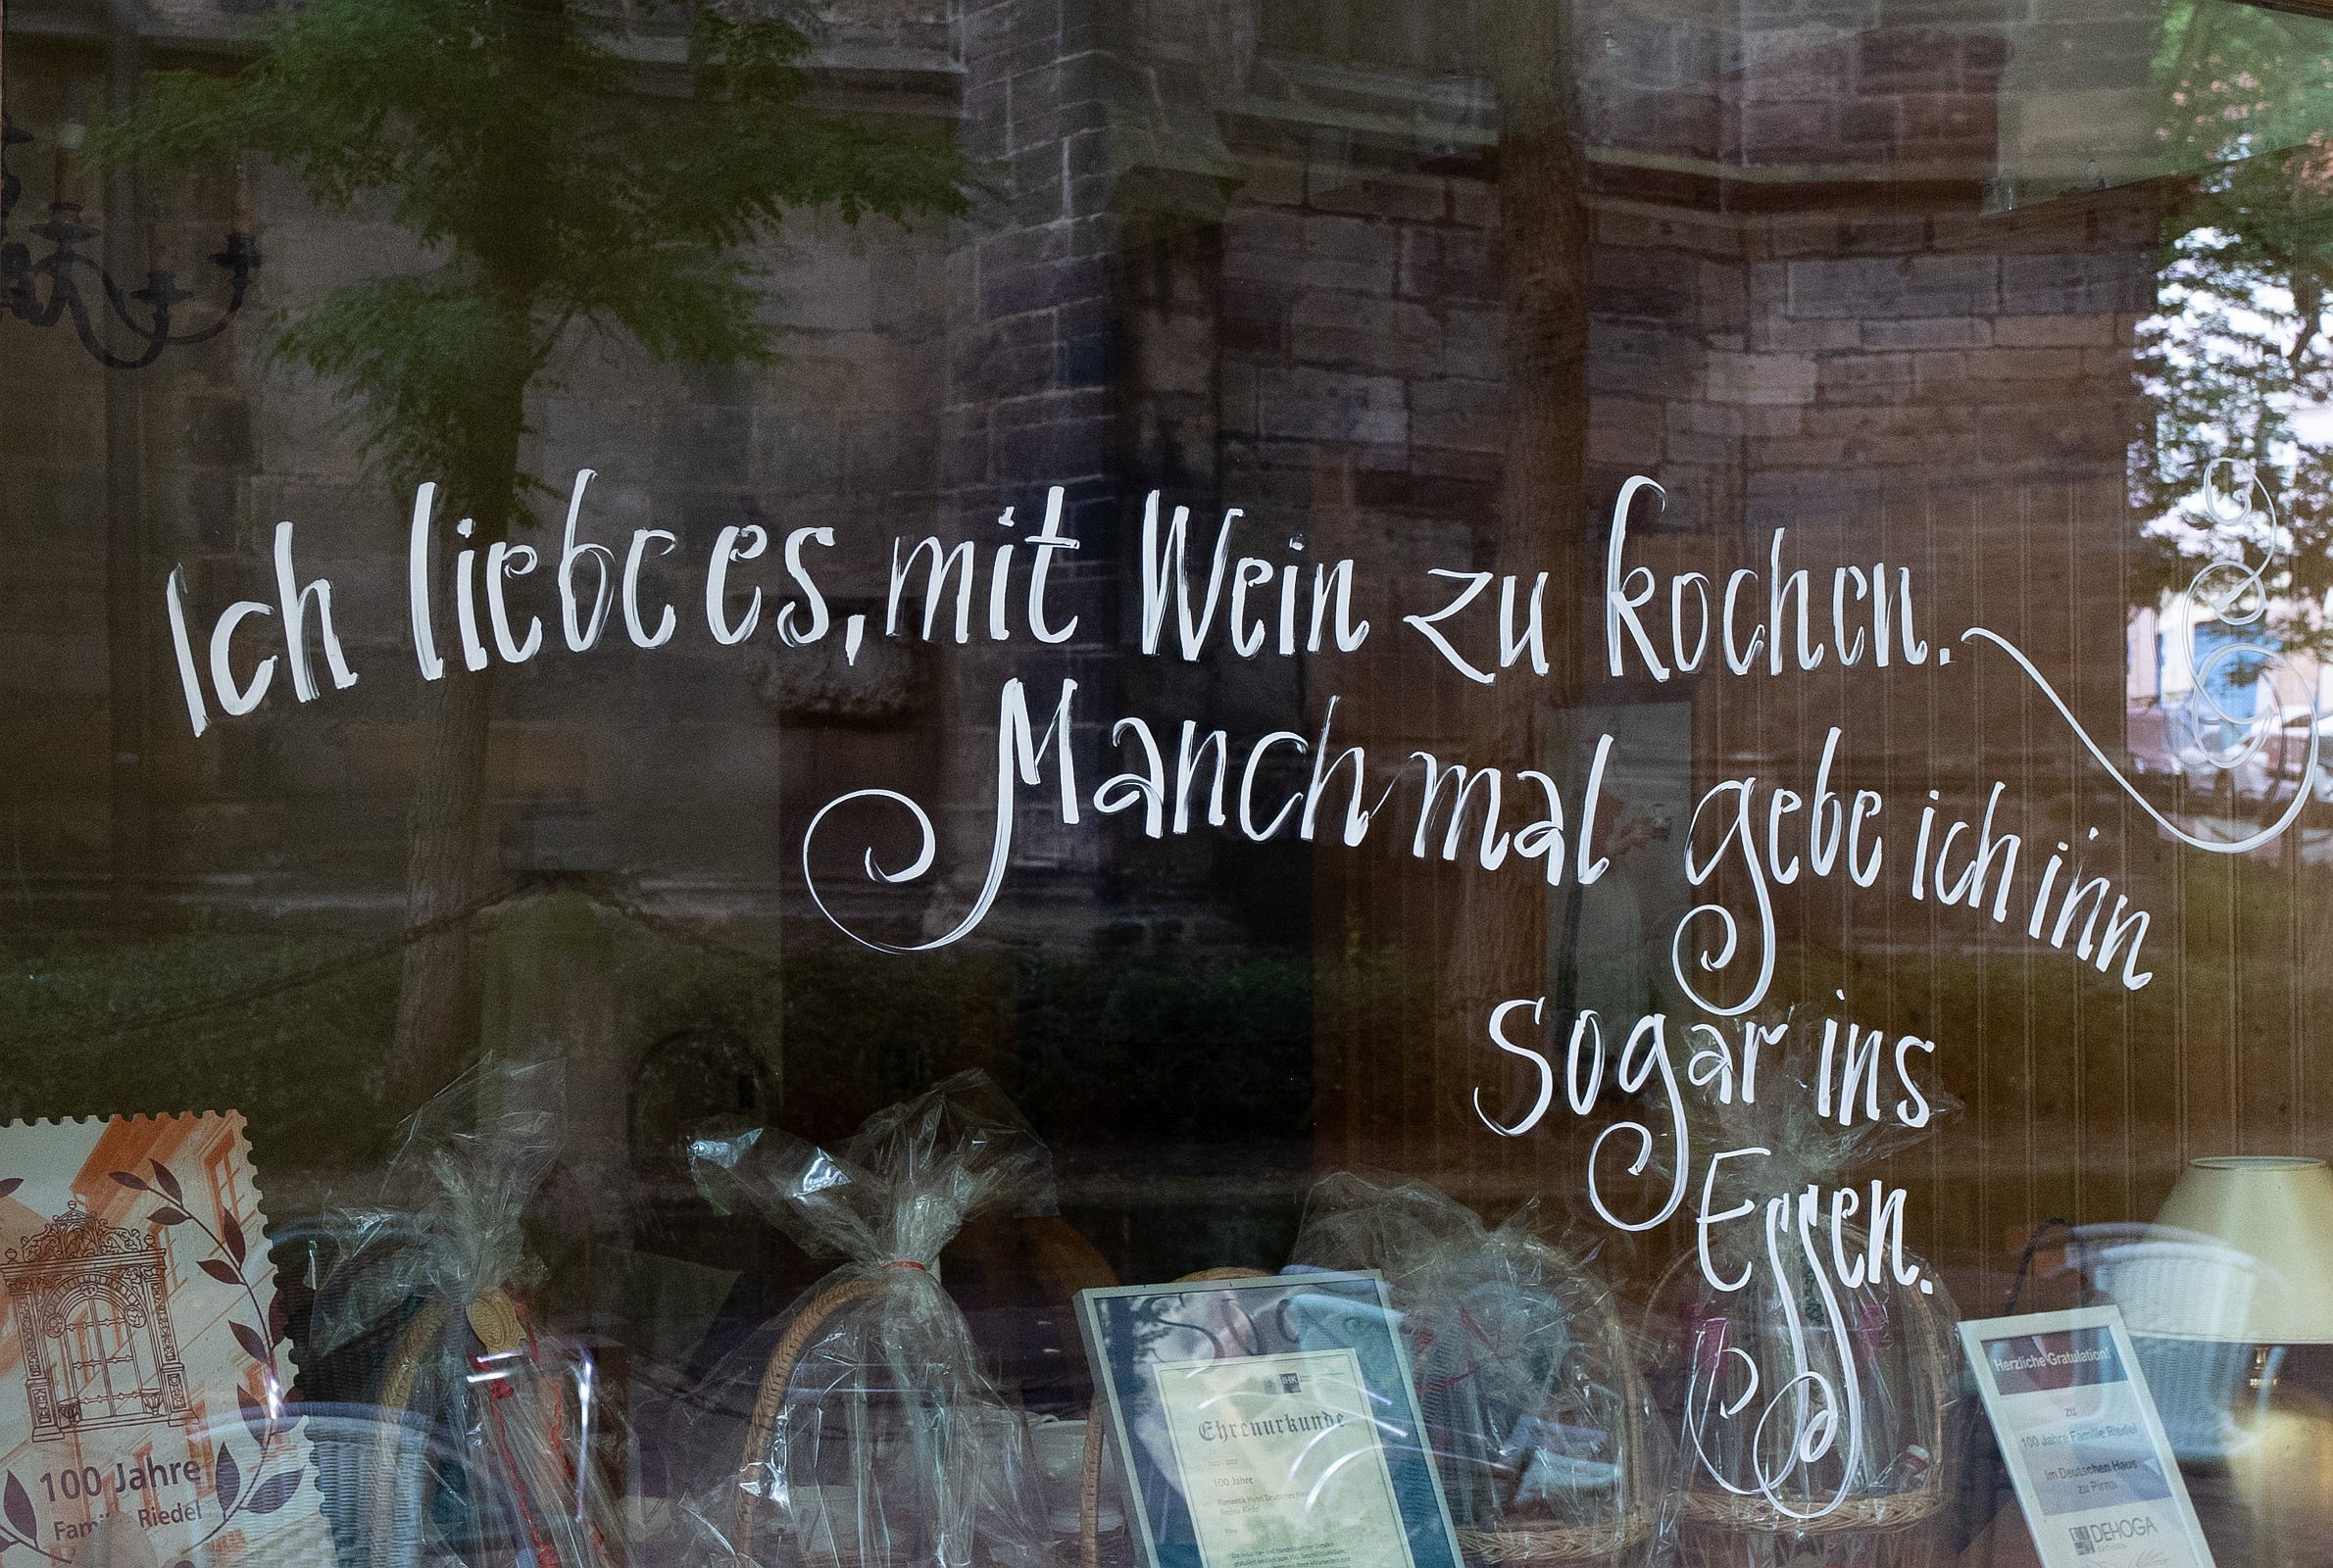 Ich liebe es, mit Wein zu kochen.
Manchmal gebe ich inn
sogar ins
Essen.
100 Jahre
Riedel
IHK
Ehrenurkunde
100 Jahre
Romantik Hotel Deutsches
Pirna
Herzliche Gratulation!
zu
100 Jahre Familie Riedel
Im Deutschen Haus
zu Pirna
DEHOGA
SACHSEN